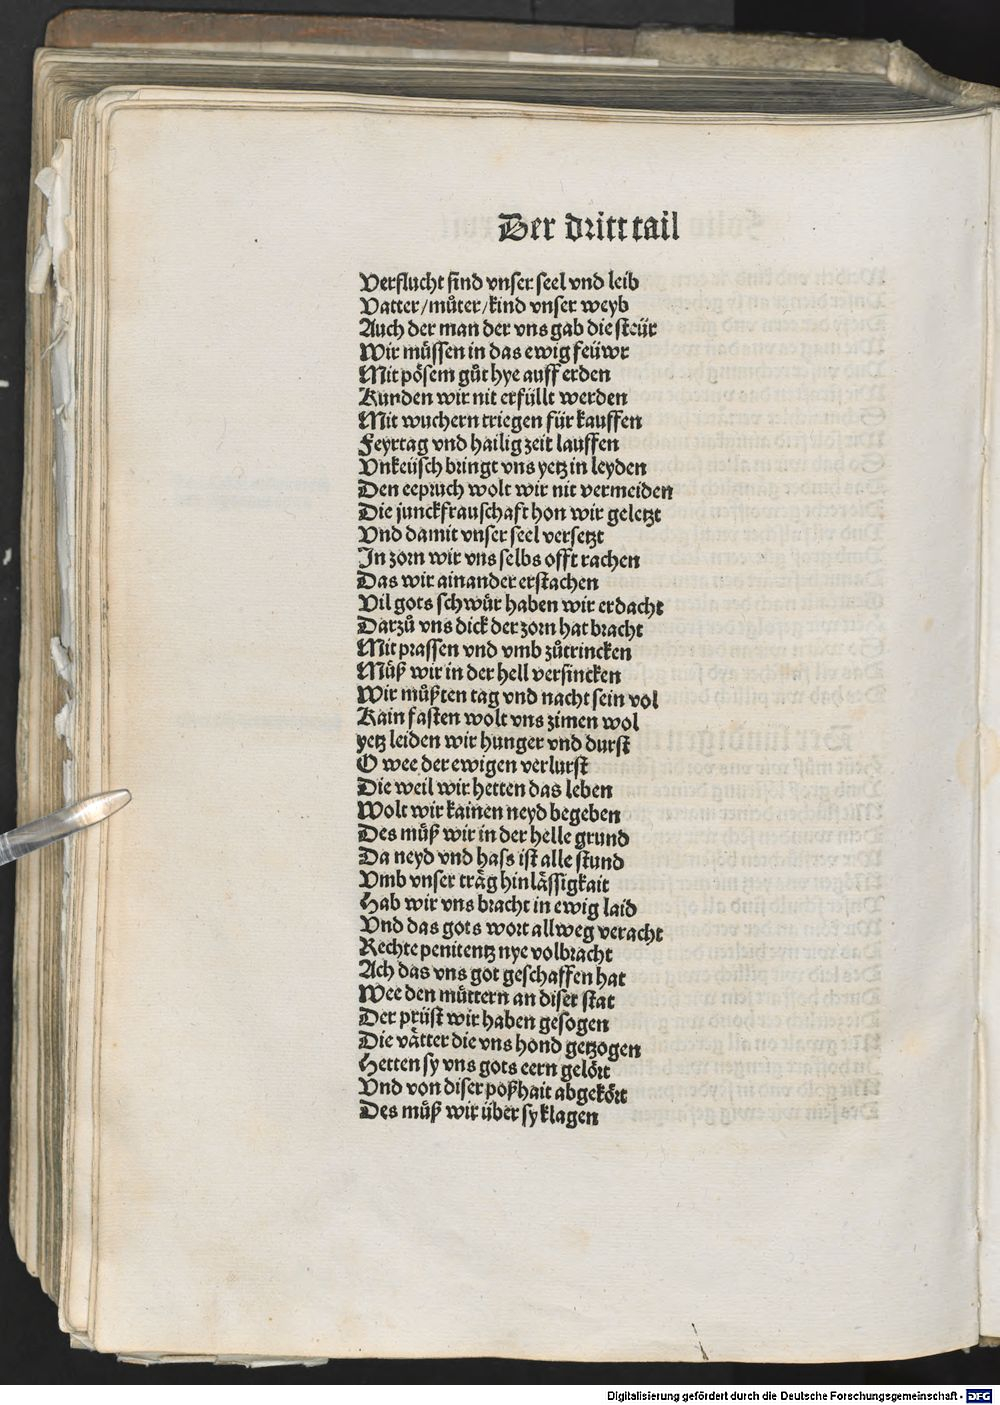 Der dritt tail
Verflucht sind vnser seel vnd leib
Vatter/můter/kind vnser weyb
Auch der man der vns gab die steür
Wir müssen in das ewig feüwr
Mit pösem gůt hye auff erden
Kunden wir nit erfüllt werden
Mit wuchern triegen für kauffen
Feyrtag vnd hailig zeit lauffen
Vnkeüsch bringt vns yetz in leyden
Den eepruch wolt wir nit vermeiden
Die junckfrauschaft hon wir geletzt
Vnd damit vnser seel versetzt
In zorn wir vns selbs offt rachen
Das wir ainander erstachen
Vil gots schwür haben wir erdacht
Darzů vns dick der zorn hat bracht
Mit prassen vnd vmb zůtrincken
Müß wir in der hell versincken
Wir müßten tag vnd nacht sein vol
Kain fasten wolt vns zimen wol
yetz leiden wir hunger vnd durst
O wee der ewigen verlurst
Die weil wir hetten das leben
Wolt wir kainen neyd begeben
Des müß wir in der helle grund
Da neyd vnd hass ist alle stund
Vmb vnser träg hinlässigkait
Hab wir vns bracht in ewig laid
Vnd das gots wort allweg veracht
Rechte penitentz nye volbracht
Ach das vns got geschaffen hat
Wee den müttern an diser stat
Der prüst wir haben gesogen
Die vätter die vns hond getzogen
Hetten sy vns gots eern gelört
Vnd von diser poßhait abgekört
Des müß wir über sy klagen
Digitalisierung gefördert durch die Deutsche Forschungsgemeinschaft - DFG